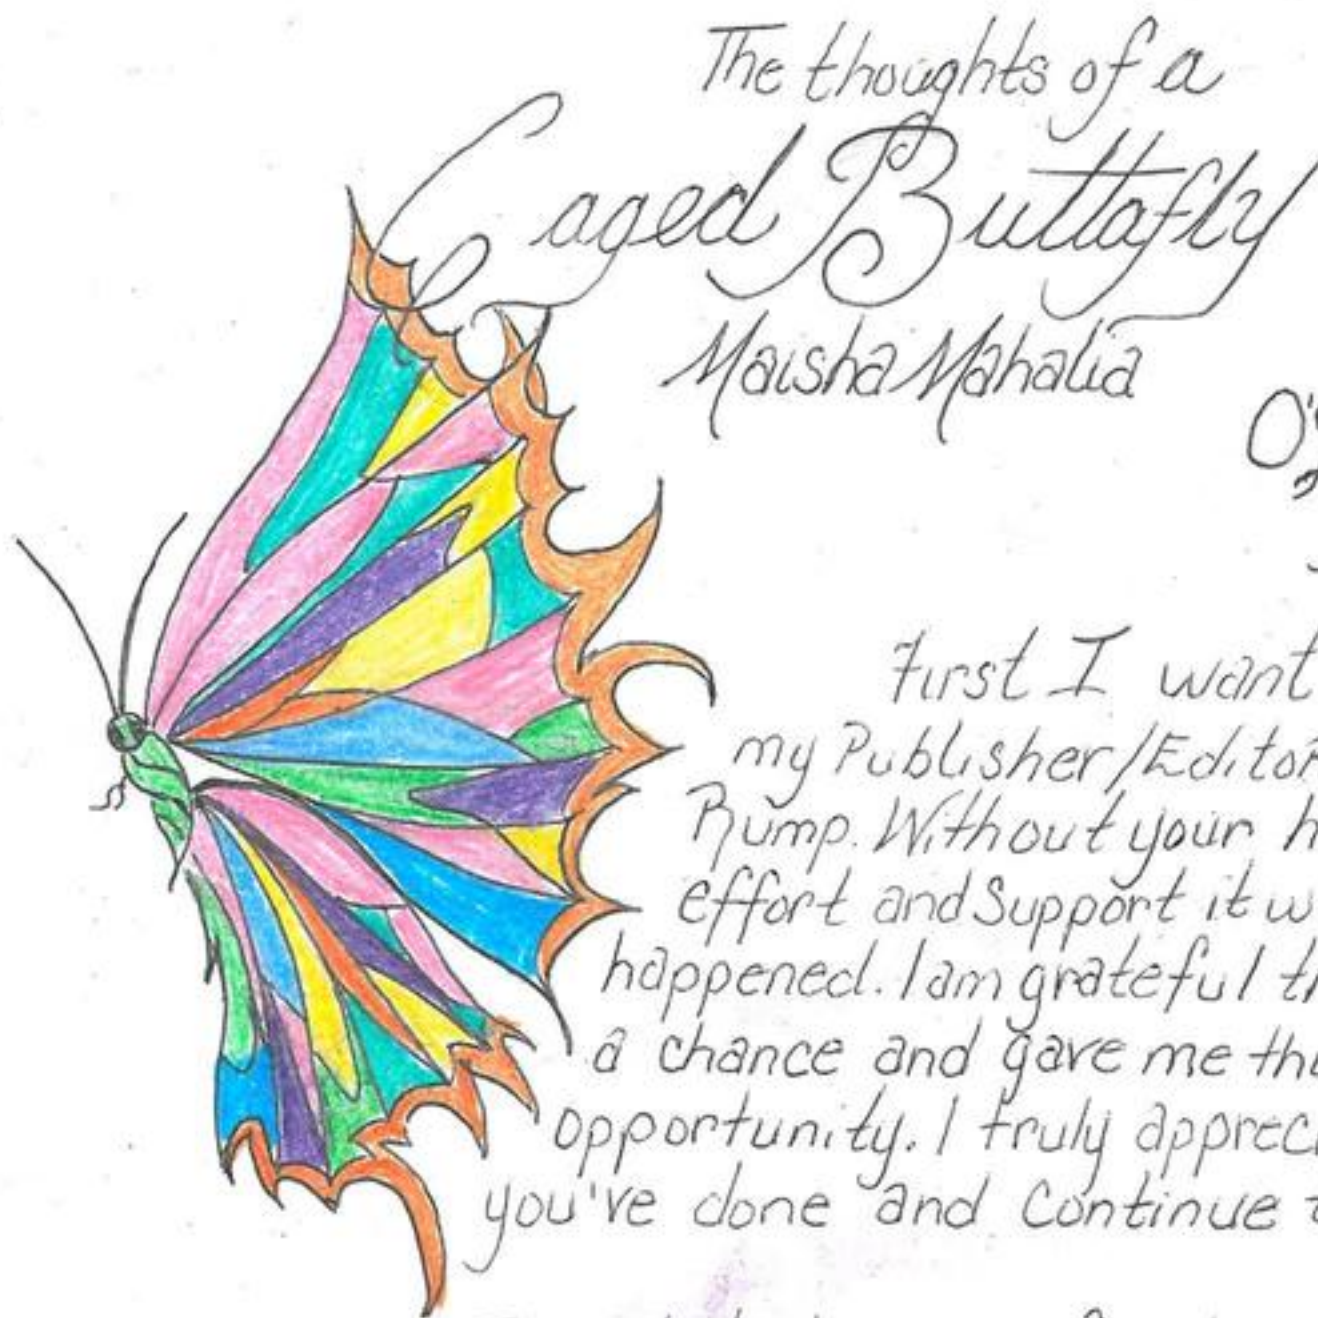 The thoughts of a
Caged Buttafly
Maisha Mahalia
First I want
my Publisher/Editor
Rump. Without your h
effort and Support it w
happened. I am grateful th
a chance and gave me thi
opportunity. I truly apprec
you've done and Continue t